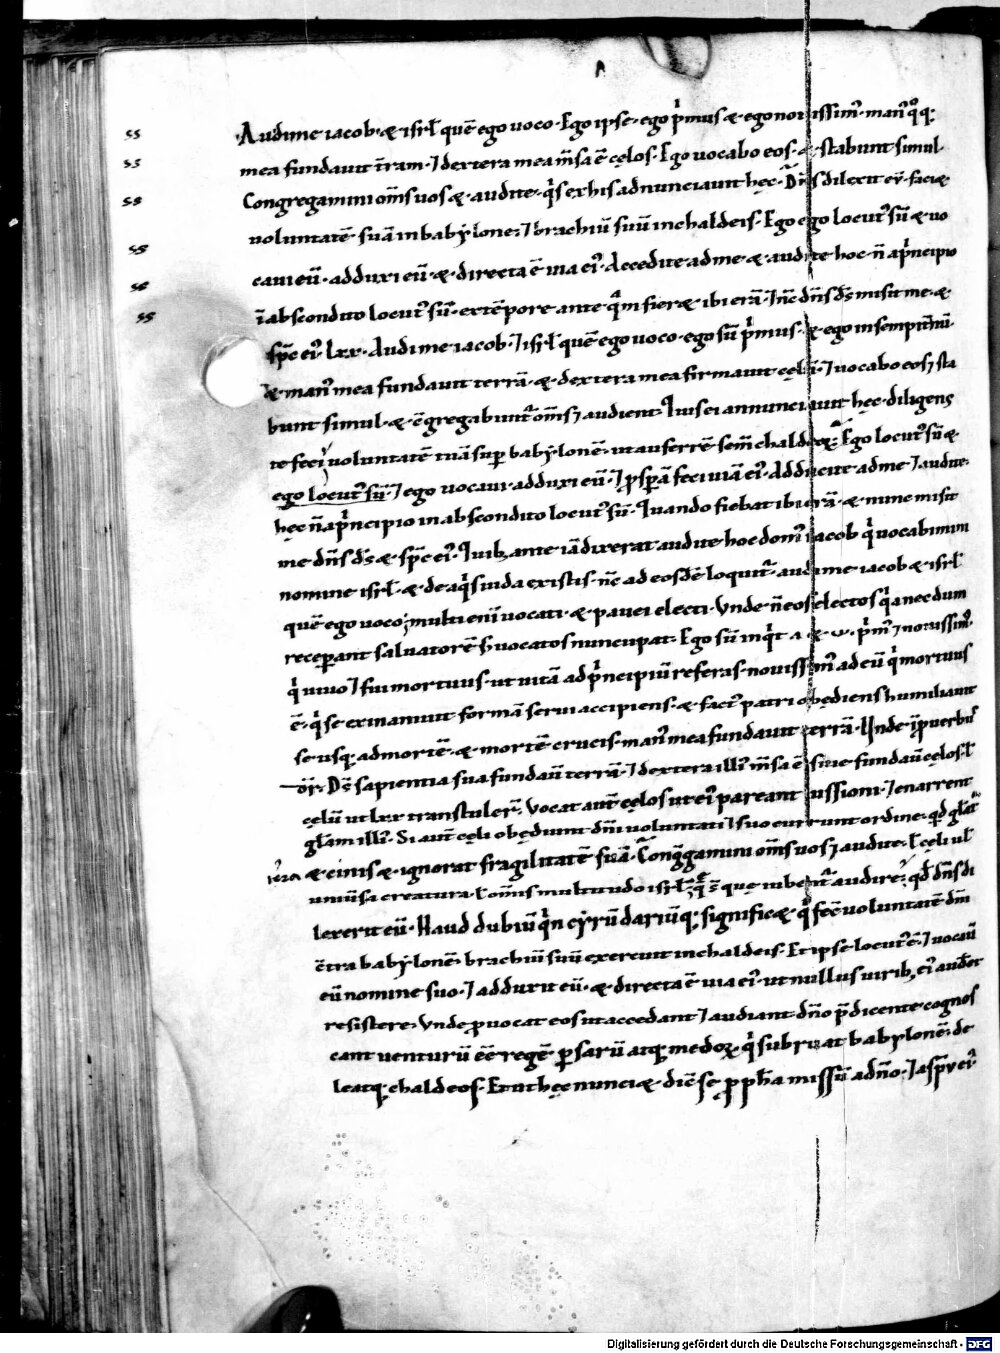 ss Audi me iacob · & isrƚ quē ego uoco · Ego ipse · ego p̍mus & · ego nouissim᷒ · man᷒ q̊q;
ss mea fundauit t̄ram · ⁊ dextera mea m̄sa ē cęlos · Ego uocabo eos · & stabunt simul ·
ss Congregamini om̄s uos & · audite · q̍s ex his adnunciauit hęc · Dn̄s dilexit eū · faci&
ss uoluntatē · suā in babylone · ⁊ brachiū suū in chaldeis · Ego ego locut᷒ sū & uo
ss caui eū · adduxi eū · & directa ē uia ei᷒ · Accedite ad me · & audite hoc · n̄ a p̍ncipio
ss ī abscondito locut᷒ sū · ex tēpore ante q̄m fier& · ibi erā · ⁊ nc̄ dn̄s ds̄ misit me · &
sp̄c ei᷒ · lxx · Audi me iacob · ⁊ isrƚ quē ego uoco · ego sū p̍mus · & ego in sempit̄nū
& · man᷒ mea fundauit terrā · & · dextera mea firmauit cęlū · ⁊ uocabo eos ⁊ sta
bunt simul · & · c̄gregabunt᷒ om̄s ⁊ audient · Quis ei annunciauit hęc · diligens
te feci uoluntatē tuā sup babylonē · ut auferrē sem̄ chaldeoꝝ · Ego locut᷒ sū &
ego locut᷒ sū · ⁊ ego uocaui · adduxi eū · ⁊ ꝓsꝑā feci uiā ei᷒ · Adducite ad me ⁊ audite
hęc n̄ a p̍ncipio in abscondito locut᷒ sū · Quando fiebat ibi erā · & nunc misit
me dn̄s ds̄ & sp̄c ei᷒ · Quib; ante iā dixerat audite hoc dom᷒ iacob q̍ uocabimini
nomine isrƚ · & · de aq̍s iuda existis · nc̄ ad eosdē loquit᷒ · audi me iacob & isrƚ
quē ego uoco; multi eni uocati · & pauci electi · Vnde n̄ eos electos q̍a necdum
receꝑant saluatorē s; uocatos nuncupat · Ego sū inq̍t · a · & ω · p̍m᷒ ⁊ nouissim᷒ ·
q̍ uiuo ⁊ fui mortuus · ut uitā ad p̍ncipiū referas · nouissim᷒ ad eū q̍ mortuus
ē · q̍ se exinaniuit formā serui accipiens · & fact᷒ patri obędiens humiliauit
se usq; ad mortē · & mortē crucis · man᷒ mea fundauit terrā · Unde ī ꝓuerbiis
dr̄ · Ds̄ sapientia sua fundau̅ terrā · ⁊ dextera illi᷒ m̄sa ē siue fundau̅ cęlos · ƚ
cęlū ut lxx transtuler̄ · Vocat aut̄ cęlos ut ei᷒ pareant iussioni · ⁊ enarrent
glām illi᷒ · Si aut̄ cęli obędiunt dn̄i uoluntati ⁊ suo currunt ordine · qd gƚat᷒
& cinis & · ignorat fragilitatē suā · Congͣgamini om̄s uos ⁊ audite · ƚ cęli uƚ
uniu̅sa creatura · ƚ omis multitudo isrƚ · q̄ ē que iubent᷒ audire · qd dn̄s di
lexerit eū · Haud dubiū q̍n cyrū dariūq; signific& · q̍ fec̄ uoluntatē dn̄i
c̄tra babylonē · brachiū suū exercuit in chaldeis · Et ipse locut᷒ ē · ⁊ uocau̅
eū nomine suo · ⁊ adduxit eū · & directa ē uia ei᷒ · ut nullus uirib; ei᷒ aud&
resistere · Vnde ꝓuocat eos ut accedant ⁊ audiant dn̄o p̄dicente cognos
cant uenturū ēē regē ꝑsarū atq; medoꝝ · q̍ subruat babylonē · de
leatq; chaldeos · Et ut hęc nunci& · dic̄ se ꝓph̄a missū a dn̄o · ⁊ a sp̄u ei᷒ ·
Digitalisierung gefördert durch die Deutsche Forschungsgemeinschaft - DFG